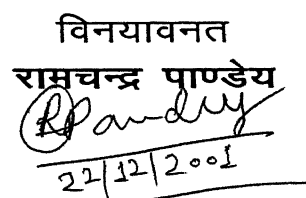 विनयावनत
रामचन्द्र पाण्डेय
RPandey
22/12/2001